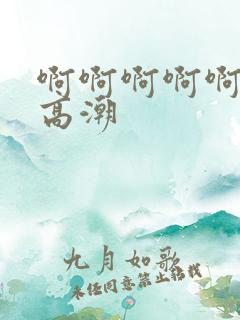 啊啊啊啊啊
高潮
九月如歌
未经同意禁止转载